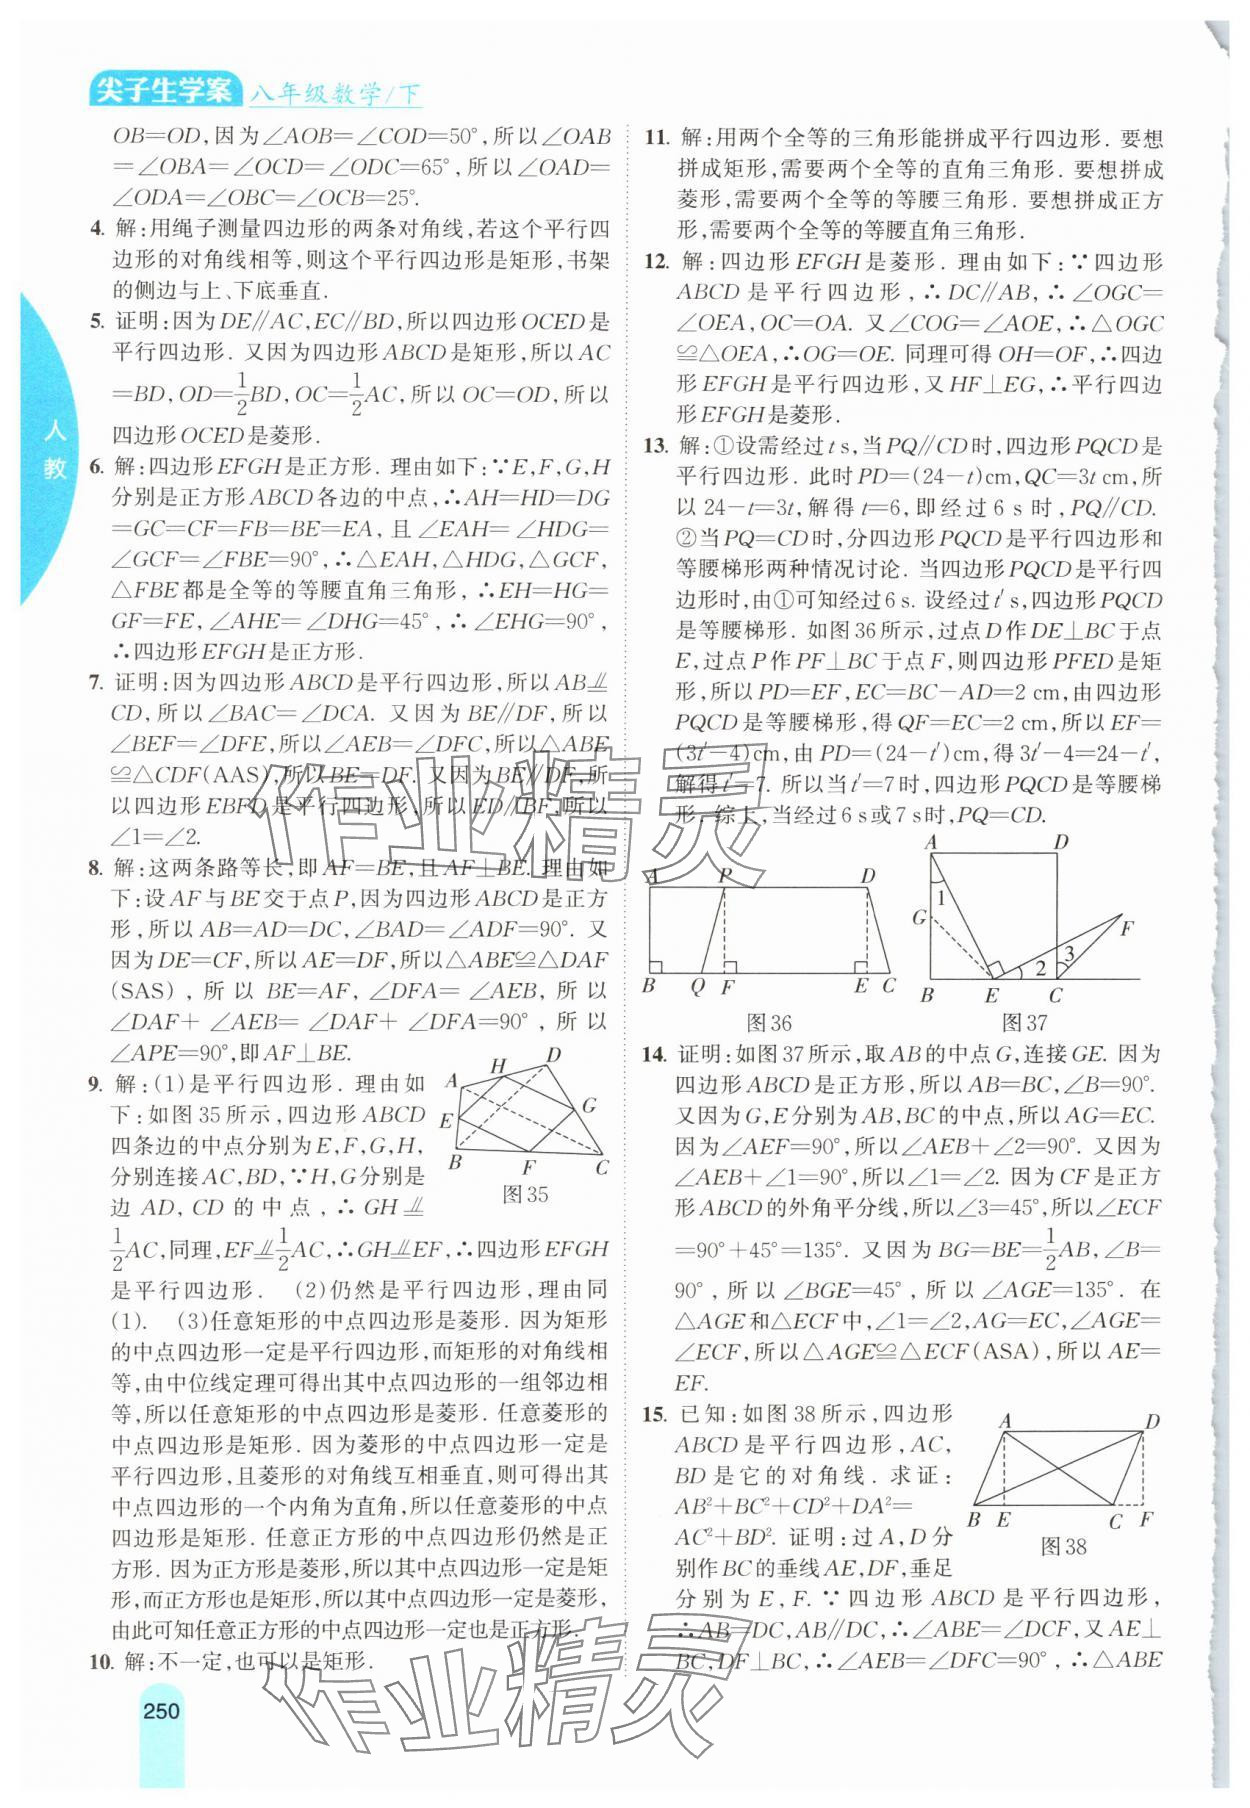 尖子生学案 八年级数学/下
OB=OD,因为∠AOB=∠COD=50°,所以∠OAB
=∠OBA=∠OCD=∠ODC=65°,所以∠OAD=
∠ODA=∠OBC=∠OCB=25°.
4. 解:用绳子测量四边形的两条对角线,若这个平行四
边形的对角线相等,则这个平行四边形是矩形,书架
的侧边与上、下底垂直.
5. 证明:因为DE∥AC,EC∥BD,所以四边形OCED是
平行四边形. 又因为四边形ABCD是矩形,所以AC
=BD,OD=1/2BD,OC=1/2AC,所以OC=OD,所以
四边形OCED是菱形.
6. 解:四边形EFGH是正方形. 理由如下:∵E,F,G,H
分别是正方形ABCD各边的中点,∴AH=HD=DG
=GC=CF=FB=BE=EA,且∠EAH=∠HDG=
∠GCF=∠FBE=90°,∴△EAH,△HDG,△GCF,
△FBE都是全等的等腰直角三角形,∴EH=HG=
GF=FE,∠AHE=∠DHG=45°,∴∠EHG=90°,
∴四边形EFGH是正方形.
7. 证明:因为四边形ABCD是平行四边形,所以AB⫫
CD,所以∠BAC=∠DCA. 又因为BE∥DF,所以
∠BEF=∠DFE,所以∠AEB=∠DFC,所以△ABE
≌△CDF(AAS),所以BE=DF. 又因为BE∥DF,所
以四边形EBFD是平行四边形,所以ED∥BF,所以
∠1=∠2.
8. 解:这两条路等长,即AF=BE,且AF⊥BE. 理由如
下:设AF与BE交于点P,因为四边形ABCD是正方
形,所以AB=AD=DC,∠BAD=∠ADF=90°. 又
因为DE=CF,所以AE=DF,所以△ABE≌△DAF
(SAS),所以BE=AF,∠DFA=∠AEB,所以
∠DAF+∠AEB=∠DAF+∠DFA=90°,所以
∠APE=90°,即AF⊥BE.
9. 解:(1)是平行四边形. 理由如
下:如图35所示,四边形ABCD
四条边的中点分别为E,F,G,H,
分别连接AC,BD,∵H,G分别是
边AD,CD的中点,∴GH⫫
1/2AC,同理,EF⫫1/2AC,∴GH⫫EF,∴四边形EFGH
是平行四边形. (2)仍然是平行四边形,理由同
(1). (3)任意矩形的中点四边形是菱形. 因为矩形
的中点四边形一定是平行四边形,而矩形的对角线相
等,由中位线定理可得出其中点四边形的一组邻边相
等,所以任意矩形的中点四边形是菱形. 任意菱形的
中点四边形是矩形. 因为菱形的中点四边形一定是
平行四边形,且菱形的对角线互相垂直,则可得出其
中点四边形的一个内角为直角,所以任意菱形的中点
四边形是矩形. 任意正方形的中点四边形仍然是正
方形. 因为正方形是菱形,所以其中点四边形一定是矩
形,而正方形也是矩形,所以其中点四边形一定是菱形,
由此可知任意正方形的中点四边形一定也是正方形.
10. 解:不一定,也可以是矩形.
A H D G E B F C
图35
11. 解:用两个全等的三角形能拼成平行四边形. 要想
拼成矩形,需要两个全等的直角三角形. 要想拼成
菱形,需要两个全等的等腰三角形. 要想拼成正方
形,需要两个全等的等腰直角三角形.
12. 解:四边形EFGH是菱形. 理由如下:∵四边形
ABCD是平行四边形,∴DC∥AB,∴∠OGC=
∠OEA,OC=OA. 又∠COG=∠AOE,∴△OGC
≌△OEA,∴OG=OE. 同理可得OH=OF,∴四边
形EFGH是平行四边形,又HF⊥EG,∴平行四边
形EFGH是菱形.
13. 解:①设需经过t s,当PQ∥CD时,四边形PQCD是
平行四边形. 此时PD=(24-t)cm,QC=3t cm,所
以24-t=3t,解得t=6,即经过6 s时,PQ∥CD.
②当PQ=CD时,分四边形PQCD是平行四边形和
等腰梯形两种情况讨论. 当四边形PQCD是平行四
边形时,由①可知经过6 s. 设经过t′s,四边形PQCD
是等腰梯形. 如图36所示,过点D作DE⊥BC于点
E,过点P作PF⊥BC于点F,则四边形PFED是矩
形,所以PD=EF,EC=BC-AD=2 cm,由四边形
PQCD是等腰梯形,得QF=EC=2 cm,所以EF=
(3t′-4)cm,由PD=(24-t′)cm,得3t′-4=24-t′,
解得t′=7. 所以当t′=7时,四边形PQCD是等腰梯
形. 综上,当经过6 s或7 s时,PQ=CD.
A P D B Q F E C
图36
A D 1 G F 3 2 B E C
图37
14. 证明:如图37所示,取AB的中点G,连接GE. 因为
四边形ABCD是正方形,所以AB=BC,∠B=90°.
又因为G,E分别为AB,BC的中点,所以AG=EC.
因为∠AEF=90°,所以∠AEB+∠2=90°. 又因为
∠AEB+∠1=90°,所以∠1=∠2. 因为CF是正方
形ABCD的外角平分线,所以∠3=45°,所以∠ECF
=90°+45°=135°. 又因为BG=BE=1/2AB,∠B=
90°,所以∠BGE=45°,所以∠AGE=135°. 在
△AGE和△ECF中,∠1=∠2,AG=EC,∠AGE=
∠ECF,所以△AGE≌△ECF(ASA),所以AE=
EF.
15. 已知:如图38所示,四边形
ABCD是平行四边形,AC,
BD是它的对角线. 求证:
AB²+BC²+CD²+DA²=
AC²+BD². 证明:过A,D分
别作BC的垂线AE,DF,垂足
分别为E,F. ∵四边形ABCD是平行四边形,
∴AB=DC,AB∥DC,∴∠ABE=∠DCF,又AE⊥
BC,DF⊥BC,∴∠AEB=∠DFC=90°,∴△ABE
A D B E C F
图38
人
教
250
作业精灵
作业精灵